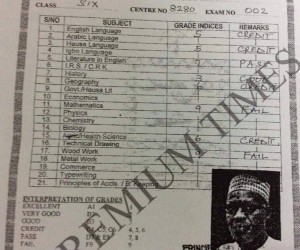 CLASS SIX CENTRE NO 8280 EXAM NO 002
S/NO SUBJECT GRADE INDICES REMARKS
1. English Language 5 CREDIT
2. Arabic Language
3. Hausa Language 5 CREDIT
4. Igbo Language
5. Literature in English 7 PASS
6. I.R.S / C.R.K
7. History 3
8. Geography 6
9. Govt./Hausa Lit
10. Economics
11. Mathematics 9 FAIL
12. Physics
13. Chemistry
14. Biology
15. Health Science 6 CREDIT
16. Technical Drawing
17. Wood Work 9 FAIL
18. Metal Work
19. Commerce
20. Typewriting
21. Principles of Accts. / B. Keeping
INTERPRETATION OF GRADES
EXCELLENT A1
VERY GOOD
GOOD
CREDIT 4, 5, 6
PASS 7, 8
FAIL F9 9
PREMIUM TIMES